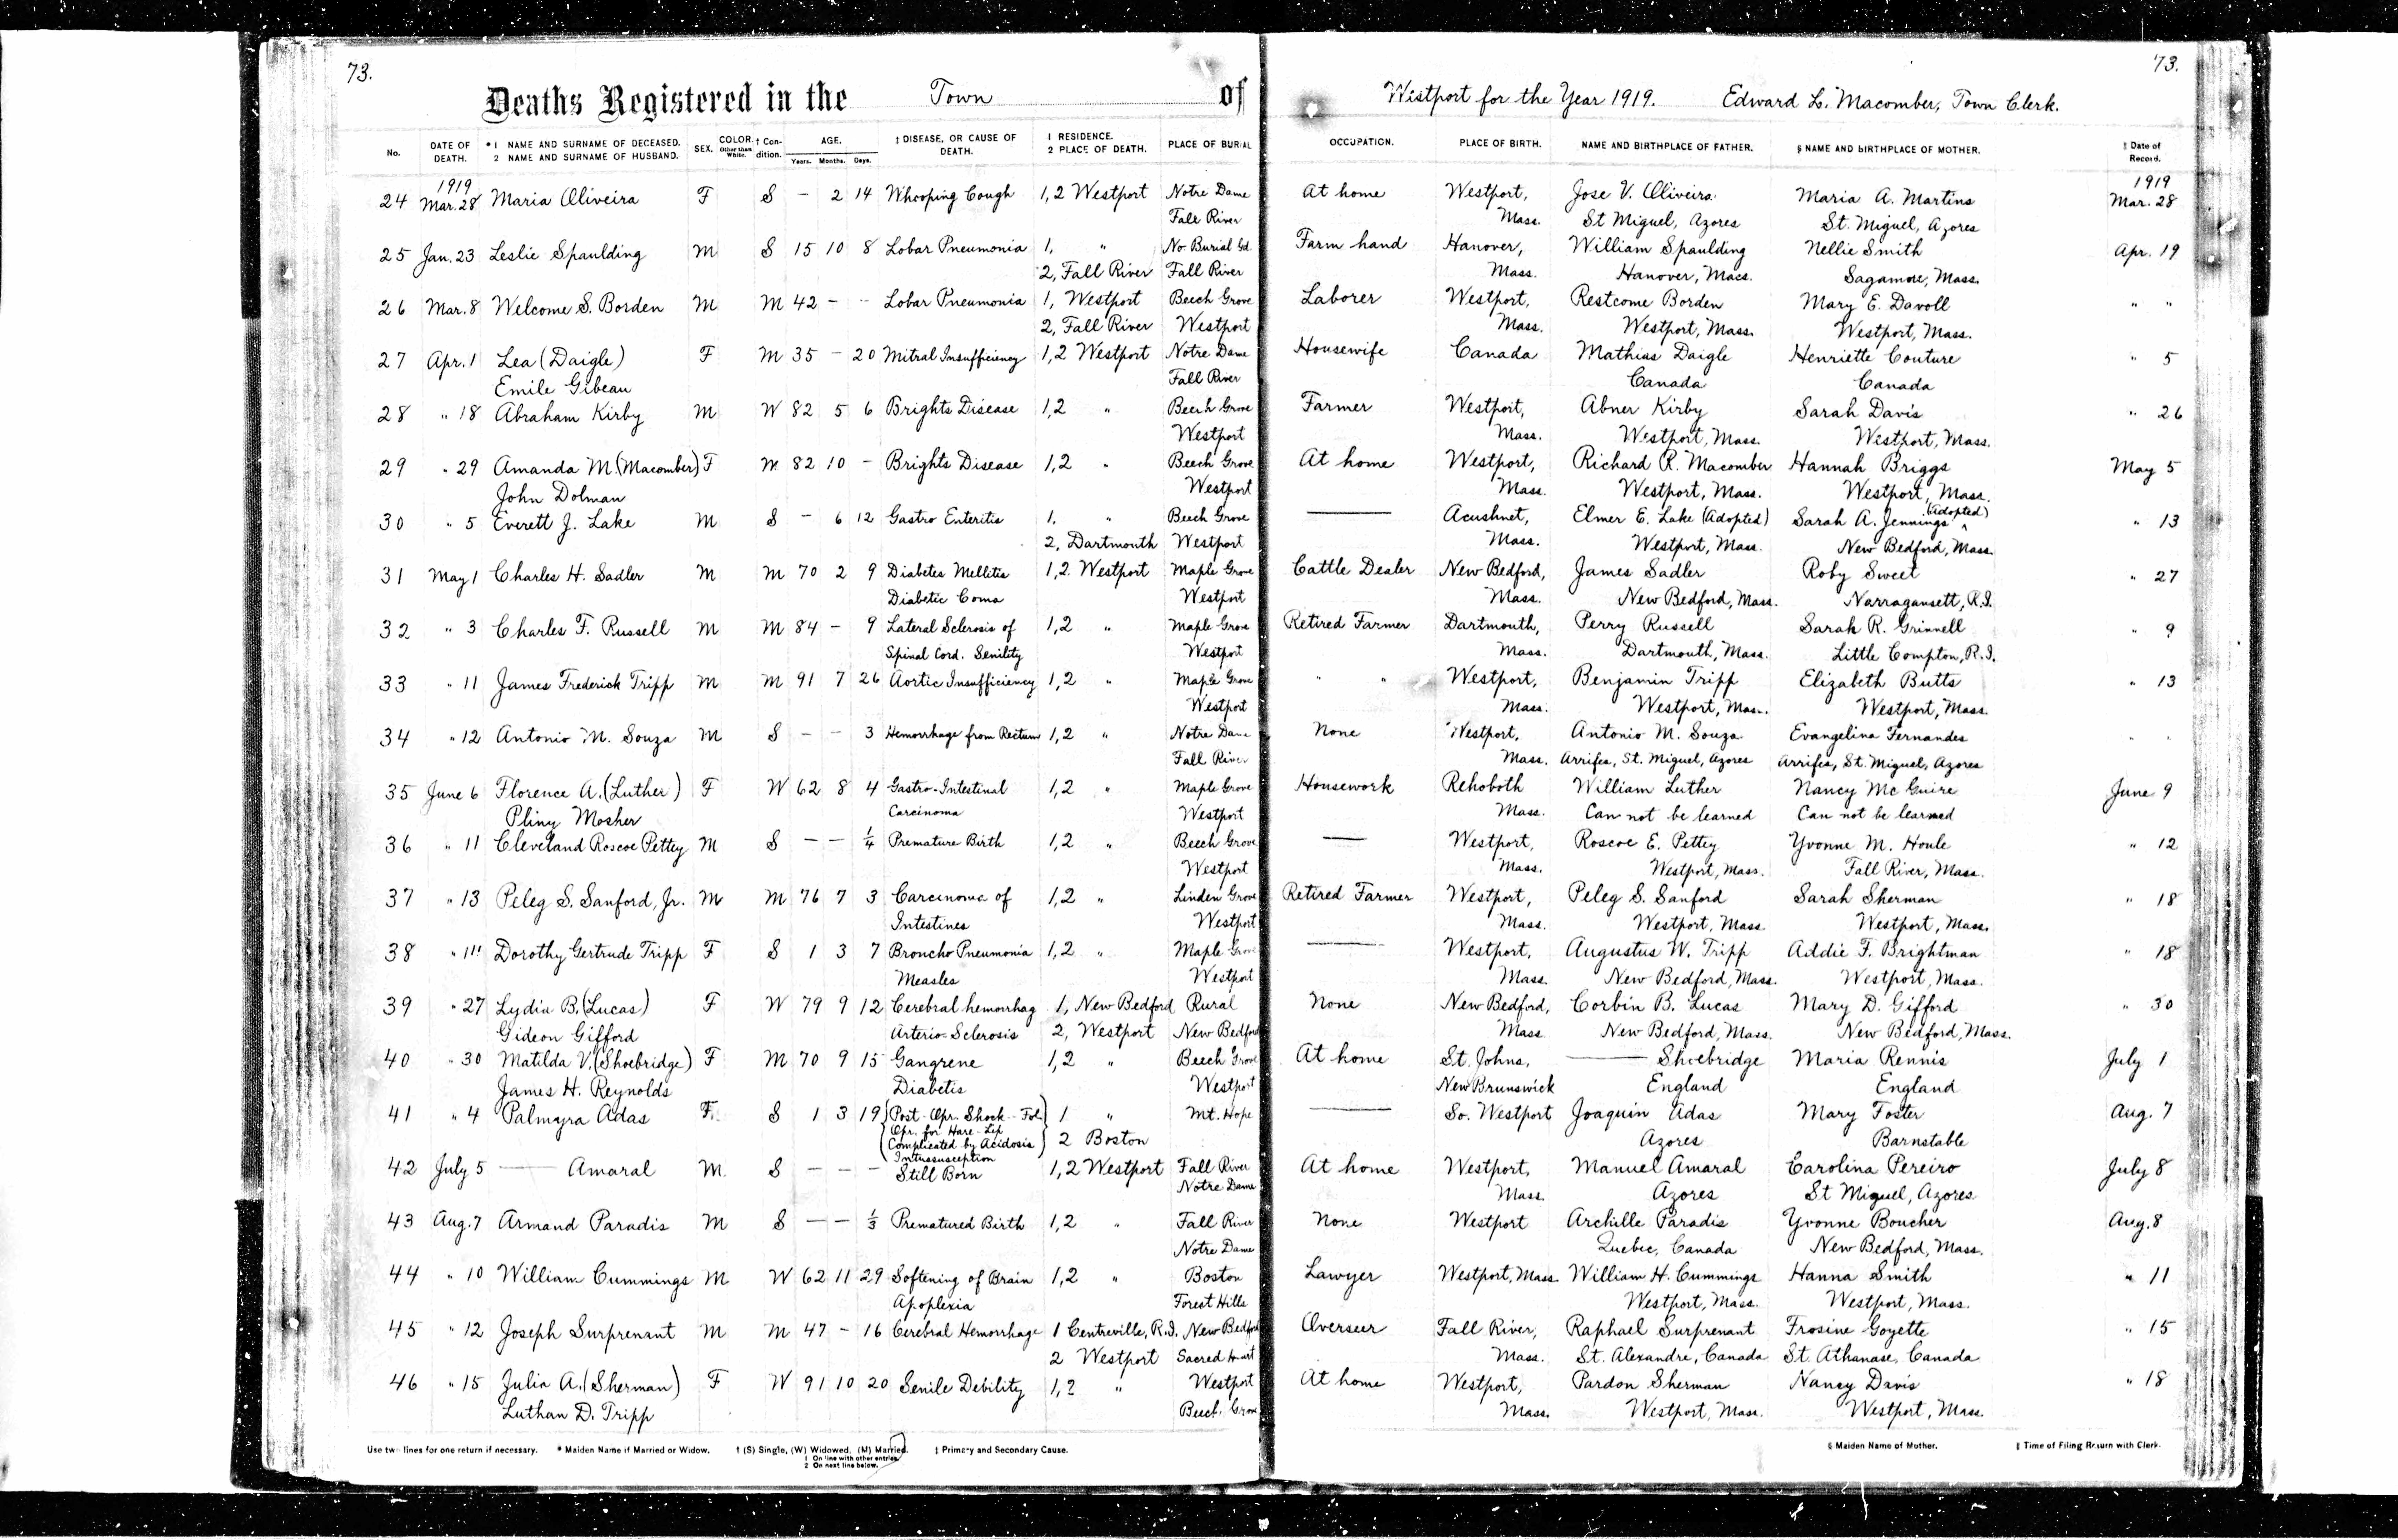 73.
73.
Deaths Registered in the Town of Westport for the Year 1919. Edward L. Macomber, Town Clerk.
No. DATE OF DEATH. *1 NAME AND SURNAME OF DECEASED. 2 NAME AND SURNAME OF HUSBAND. SEX. COLOR. Other than White. † Condition. AGE. Years. Months. Days. ‡ DISEASE, OR CAUSE OF DEATH. 1 RESIDENCE. 2 PLACE OF DEATH. PLACE OF BURIAL OCCUPATION. PLACE OF BIRTH. NAME AND BIRTHPLACE OF FATHER. § NAME AND BIRTHPLACE OF MOTHER. ‖ Date of Record.
1919 1919
24 Mar. 28 Maria Oliveira F S - 2 14 Whooping Cough 1,2 Westport Notre Dame At home Westport, Jose V. Oliveira. Maria A. Martins Mar. 28
Fall River Mass. St Miguel, Azores St. Miguel, Azores
25 Jan. 23 Leslie Spaulding M S 15 10 8 Lobar Pneumonia 1, " No Burial Gd. Farm hand Hanover, William Spaulding Nellie Smith Apr. 19
2, Fall River Fall River Mass. Hanover, Mass. Sagamore, Mass.
26 Mar. 8 Welcome S. Borden M M 42 - - Lobar Pneumonia 1, Westport Beech Grove Laborer Westport, Restcome Borden Mary E. Davoll " "
2, Fall River Westport Mass. Westport, Mass. Westport, Mass.
27 Apr. 1 Lea (Daigle) F M 35 - 20 Mitral Insufficiency 1,2 Westport Notre Dame Housewife Canada Mathias Daigle Henriette Couture " 5
Emile Gibeau Fall River Canada Canada
28 " 18 Abraham Kirby M W 82 5 6 Brights Disease 1,2 " Beech Grove Farmer Westport, Abner Kirby Sarah Davis " 26
Westport Mass. Westport, Mass. Westport, Mass.
29 " 29 Amanda M. (Macomber) F M 82 10 - Brights Disease 1,2 " Beech Grove At home Westport, Richard R. Macomber Hannah Briggs May 5
John Dolman Westport Mass. Westport, Mass. Westport, Mass.
30 " 5 Everett J. Lake M S - 6 12 Gastro Enteritis 1, " Beech Grove — Acushnet, Elmer E. Lake (Adopted) Sarah A. Jennings (Adopted) " 13
2, Dartmouth Westport Mass. Westport, Mass. New Bedford, Mass.
31 May 1 Charles H. Sadler M M 70 2 9 Diabetes Mellitis 1,2 Westport Maple Grove Cattle Dealer New Bedford, James Sadler Roby Sweet " 27
Diabetic Coma Westport Mass. New Bedford, Mass. Narragansett, R.I.
32 " 3 Charles F. Russell M M 84 - 9 Lateral Sclerosis of 1,2 " Maple Grove Retired Farmer Dartmouth, Perry Russell Sarah R. Grinnell " 9
Spinal Cord. Senility Westport Mass. Dartmouth, Mass. Little Compton, R.I.
33 " 11 James Frederick Tripp M M 91 7 26 Aortic Insufficiency 1,2 " Maple Grove " " Westport, Benjamin Tripp Elizabeth Butts " 13
Westport Mass. Westport, Mass. Westport, Mass.
34 " 12 Antonio M. Souza M S - - 3 Hemorrhage from Rectum 1,2 " Notre Dame None Westport, Antonio M. Souza Evangelina Fernandes " "
Fall River Mass. Arrifes, St. Miguel, Azores Arrifes, St. Miguel, Azores
35 June 6 Florence A. (Luther) F W 62 8 4 Gastro-Intestinal 1,2 " Maple Grove Housework Rehoboth William Luther Nancy Mc Guire June 9
Pliny Mosher Carcinoma Westport Mass. Can not be learned Can not be learned
36 " 11 Cleveland Roscoe Pettey M S — — ¼ Premature Birth 1,2 " Beech Grove — Westport, Roscoe E. Pettey Yvonne M. Houle " 12
Westport Mass. Westport, Mass. Fall River, Mass.
37 " 13 Peleg S. Sanford, Jr. M M 76 7 3 Carcinoma of 1,2 " Linden Grove Retired Farmer Westport, Peleg S. Sanford Sarah Sherman " 18
Intestines Westport Mass. Westport, Mass. Westport, Mass.
38 " Dorothy Gertrude Tripp F S 1 3 7 Broncho Pneumonia 1,2 " Maple Grove — Westport, Augustus W. Tripp Addie F. Brightman " 18
Measles Westport Mass. New Bedford, Mass. Westport, Mass.
39 " 27 Lydia B. (Lucas) F W 79 9 12 Cerebral hemorrhag 1, New Bedford Rural None New Bedford, Corbin B. Lucas Mary D. Gifford " 30
Gideon Gifford Arterio-Sclerosis 2, Westport New Bedford Mass. New Bedford, Mass. New Bedford, Mass.
40 " 30 Matilda V. (Shoebridge) F M 70 9 15 Gangrene 1,2 " Beech Grove At home St. Johns, — Shoebridge Maria Rennis July 1
James H. Reynolds Diabetis Westport New Brunswick England England
41 " 4 Palmyra Adas F. S 1 3 19 Post-Opr. Shock - Fol. 1 " Mt. Hope — So. Westport Joaquin Adas Mary Foster Aug. 7
Opr. for Hare-Lip
Complicated by Acidosis 2 Boston Azores Barnstable
Intussusception
42 July 5 — Amaral M. S — — — Still Born 1,2 Westport Fall River At home Westport, Manuel Amaral Carolina Pereiro July 8
Notre Dame Mass. Azores St Miguel, Azores
43 Aug. 7 Armand Paradis M S — — ⅓ Prematured Birth 1,2 " Fall River None Westport Archille Paradis Yvonne Boucher Aug. 8
Notre Dame Quebec, Canada New Bedford, Mass.
44 " 10 William Cummings M W 62 11 29 Softening of Brain 1,2 " Boston Lawyer Westport, Mass. William H. Cummings Hanna Smith " 11
Apoplexia Forest Hills Westport, Mass. Westport, Mass.
45 " 12 Joseph Surprenant M M 47 - 16 Cerebral Hemorrhage 1 Centreville, R.I. New Bedford Overseer Fall River, Raphael Surprenant Frosine Goyette " 15
2 Westport Sacred Heart Mass. St. Alexandre, Canada St. Athanase, Canada
46 " 15 Julia A. (Sherman) F W 91 10 20 Senile Debility 1,2 " Westport At home Westport, Pardon Sherman Nancy Davis " 18
Luthan D. Tripp Beech Grove Mass. Westport, Mass. Westport, Mass.
Use two lines for one return if necessary. * Maiden Name if Married or Widow. † (S) Single, (W) Widowed, (M) Married. ‡ Primary and Secondary Cause. § Maiden Name of Mother. ‖ Time of Filing Return with Clerk.
1 On line with other entries.
2 On next line below.